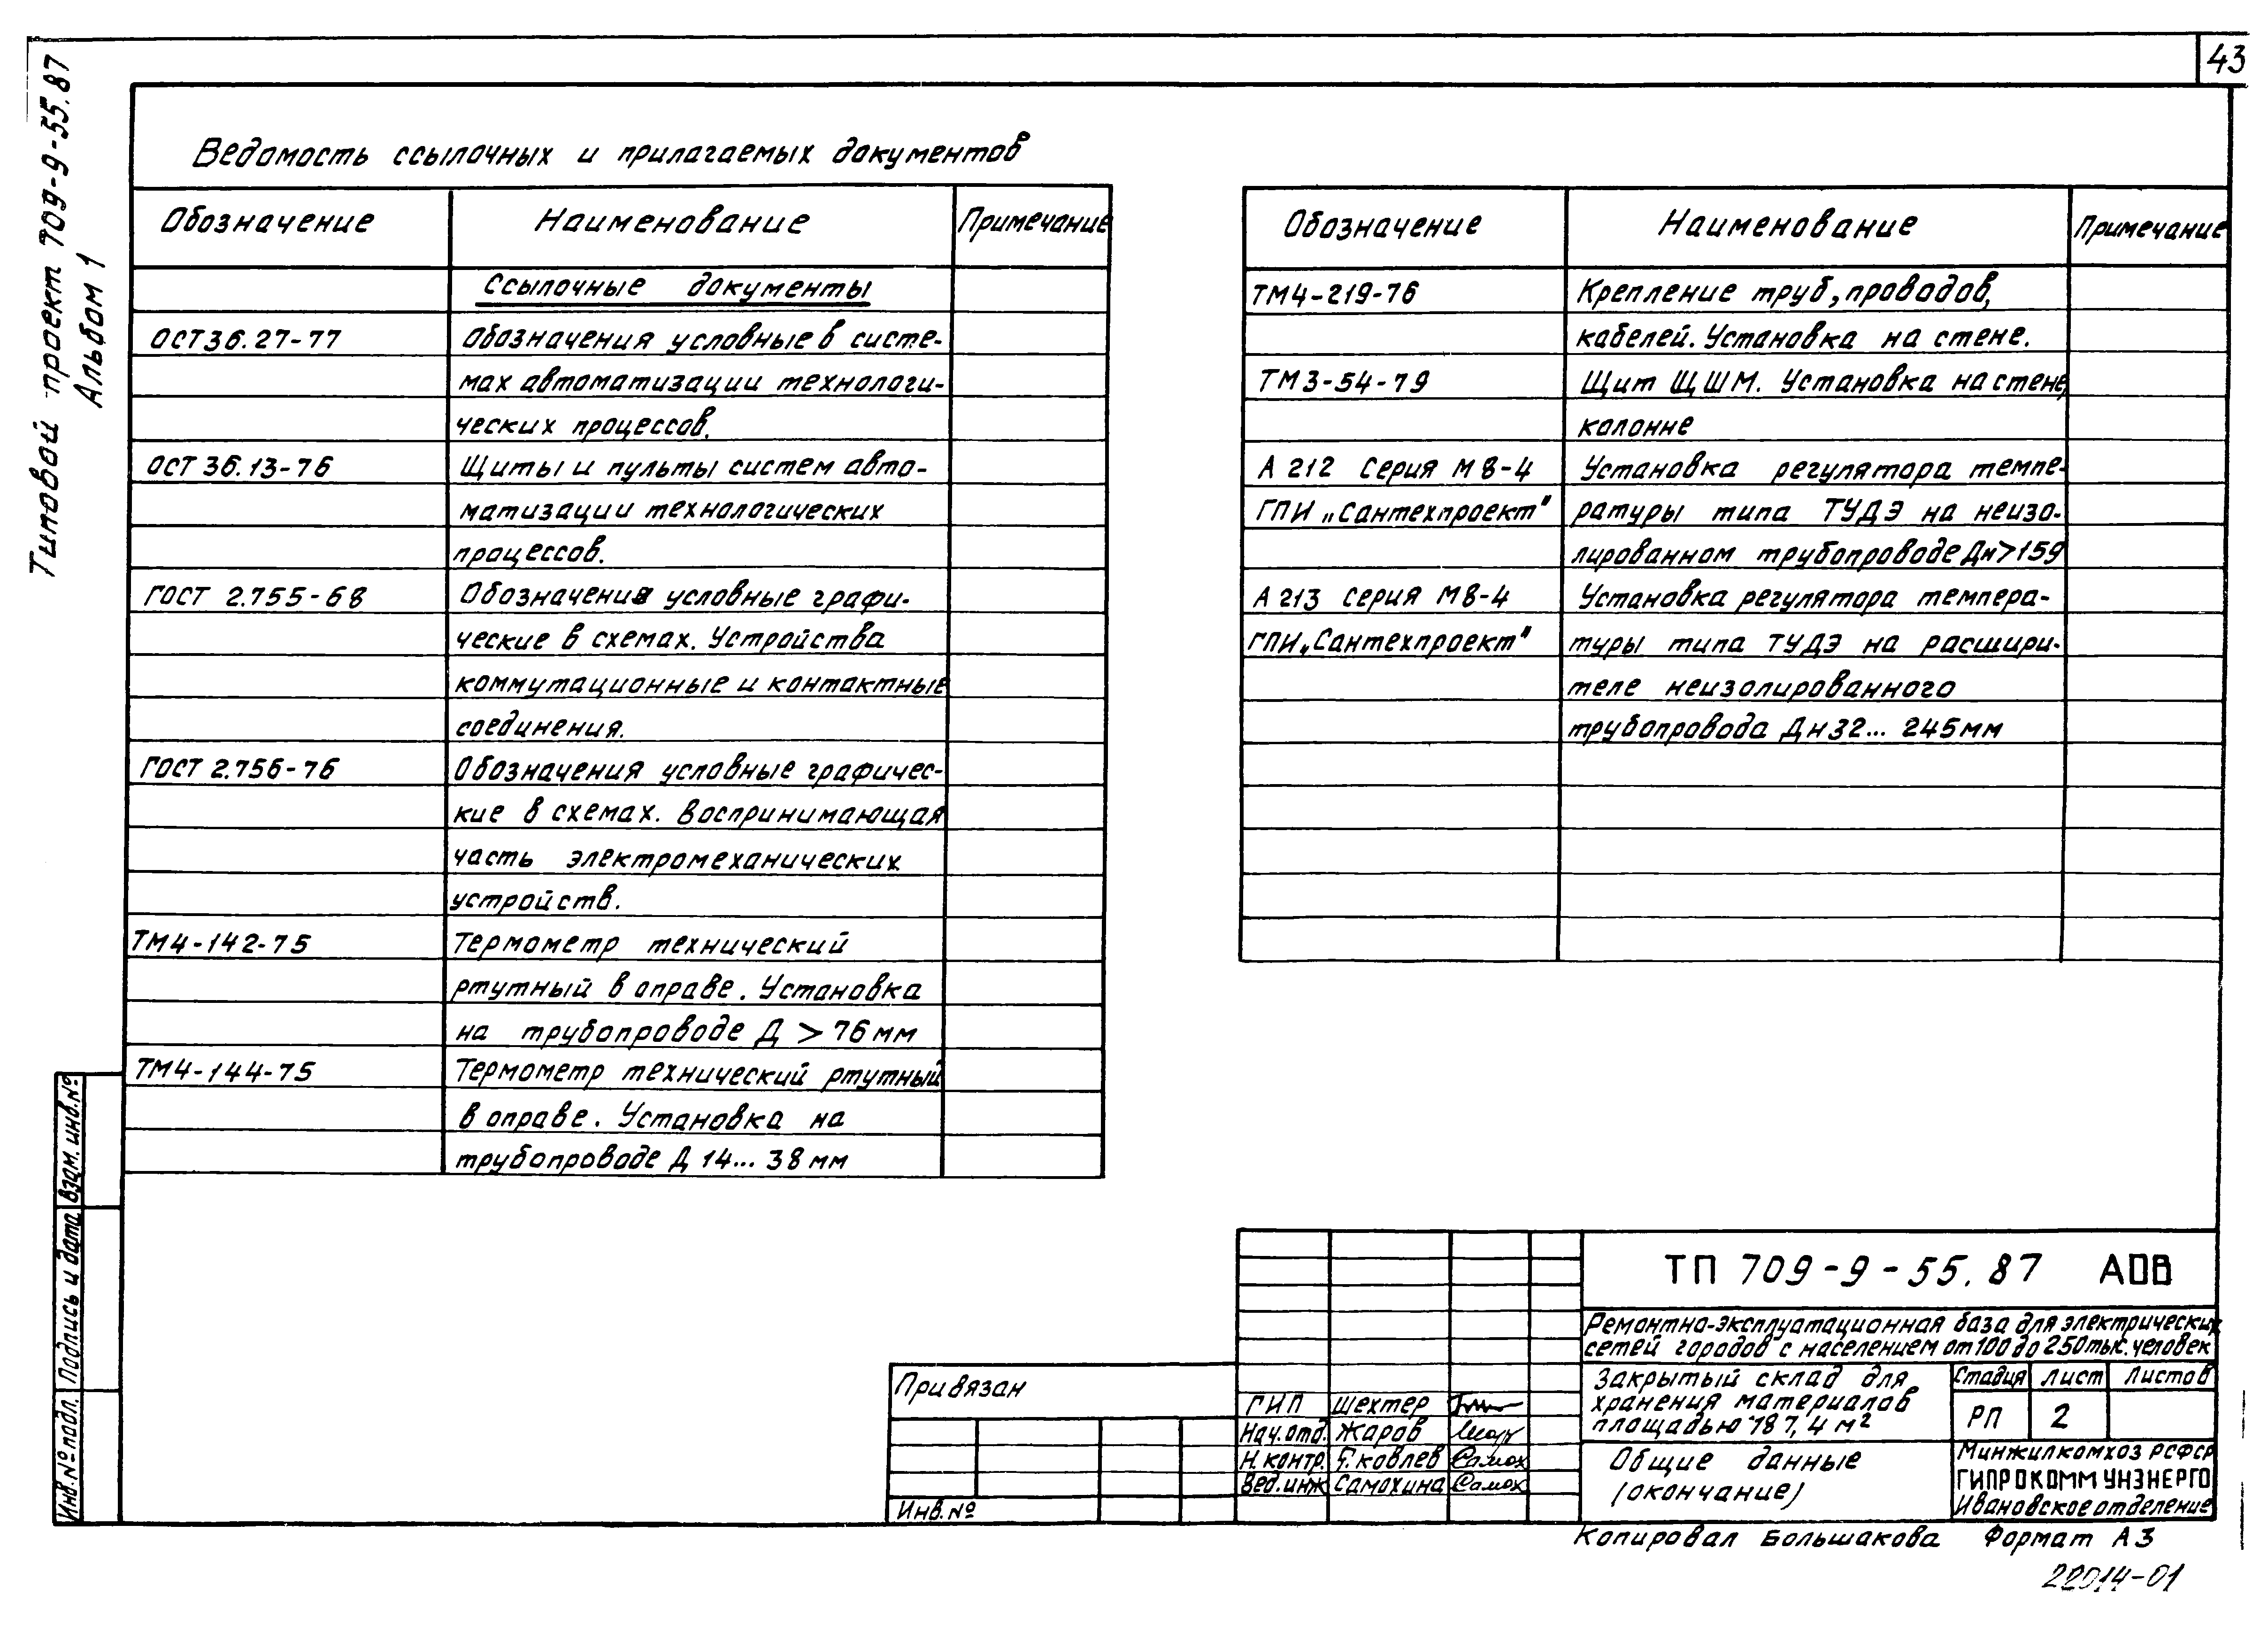 43
Типовой проект 709-9-55.87
Альбом 1
Ведомость ссылочных и прилагаемых документов
Обозначение Наименование Примечание
Ссылочные документы
ОСТ 36.27-77 Обозначения условные в систе-
мах автоматизации технологи-
ческих процессов.
ОСТ 36.13-76 Щиты и пульты систем авто-
матизации технологических
процессов.
ГОСТ 2.755-68 Обозначения условные графи-
ческие в схемах. Устройства
коммутационные и контактные
соединения.
ГОСТ 2.756-76 Обозначения условные графичес-
кие в схемах. Воспринимающая
часть электромеханических
устройств.
ТМ4-142-75 Термометр технический
ртутный в оправе. Установка
на трубопроводе Д > 76 мм
ТМ4-144-75 Термометр технический ртутный
в оправе. Установка на
трубопроводе Д 14... 38 мм
Обозначение Наименование Примечание
ТМ4-219-76 Крепление труб, проводов,
кабелей. Установка на стене.
ТМ3-54-79 Щит ЩШМ. Установка на стене,
колонне
А 212 серия М8-4 Установка регулятора темпе-
ГПИ „Сантехпроект" ратуры типа ТУДЭ на неизо-
лированном трубопроводе Дн>159
А 213 серия М8-4 Установка регулятора темпера-
ГПИ „Сантехпроект" туры типа ТУДЭ на расшири-
теле неизолированного
трубопровода Дн 32... 245 мм
Инв. № подл. Подпись и дата Взам. инв. №
Привязан
Инв. №
ГИП Шехтер
Нач. отд. Жаров
Н. контр. Яковлев
Вед. инж Самохина
ТП 709-9-55.87 АОВ
Ремонтно-эксплуатационная база для электрических
сетей городов с населением от 100 до 250 тыс. человек
Закрытый склад для
хранения материалов
площадью 187,4 м²
Стадия Лист Листов
РП 2
Общие данные
(окончание)
Минжилкомхоз РСФСР
ГИПРОКОММУНЭНЕРГО
Ивановское отделение
Копировал Большакова Формат А3
22014-01